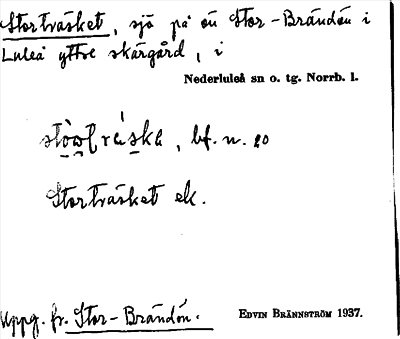 Storträsket, sjö på ön Stor-Brändön i
Luleå yttre skärgård, i
Nederluleå sn o. tg. Norrb. l.
bf. n. so
Storträsket ek.
Uppg. fr. Stor-Brändön.
EDVIN BRÄNNSTRÖM 1937.